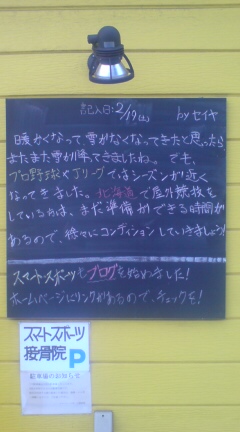 記入日:2/19(土) by セイヤ
暖かくなって、雪がなくなってきたと思ったら
またまた雪が降ってきましたね。でも、
プロ野球やJリーグではシーズンが近く
なってきました。北海道で屋外競技を
している方は、まだ準備ができる時間が
あるので、徐々にコンディションしていきましょう!
スマートスポーツもブログを始めました!
ホームページにリンクがあるので、チェックを!
スマートスポーツ
接骨院 P
駐車場のお知らせ